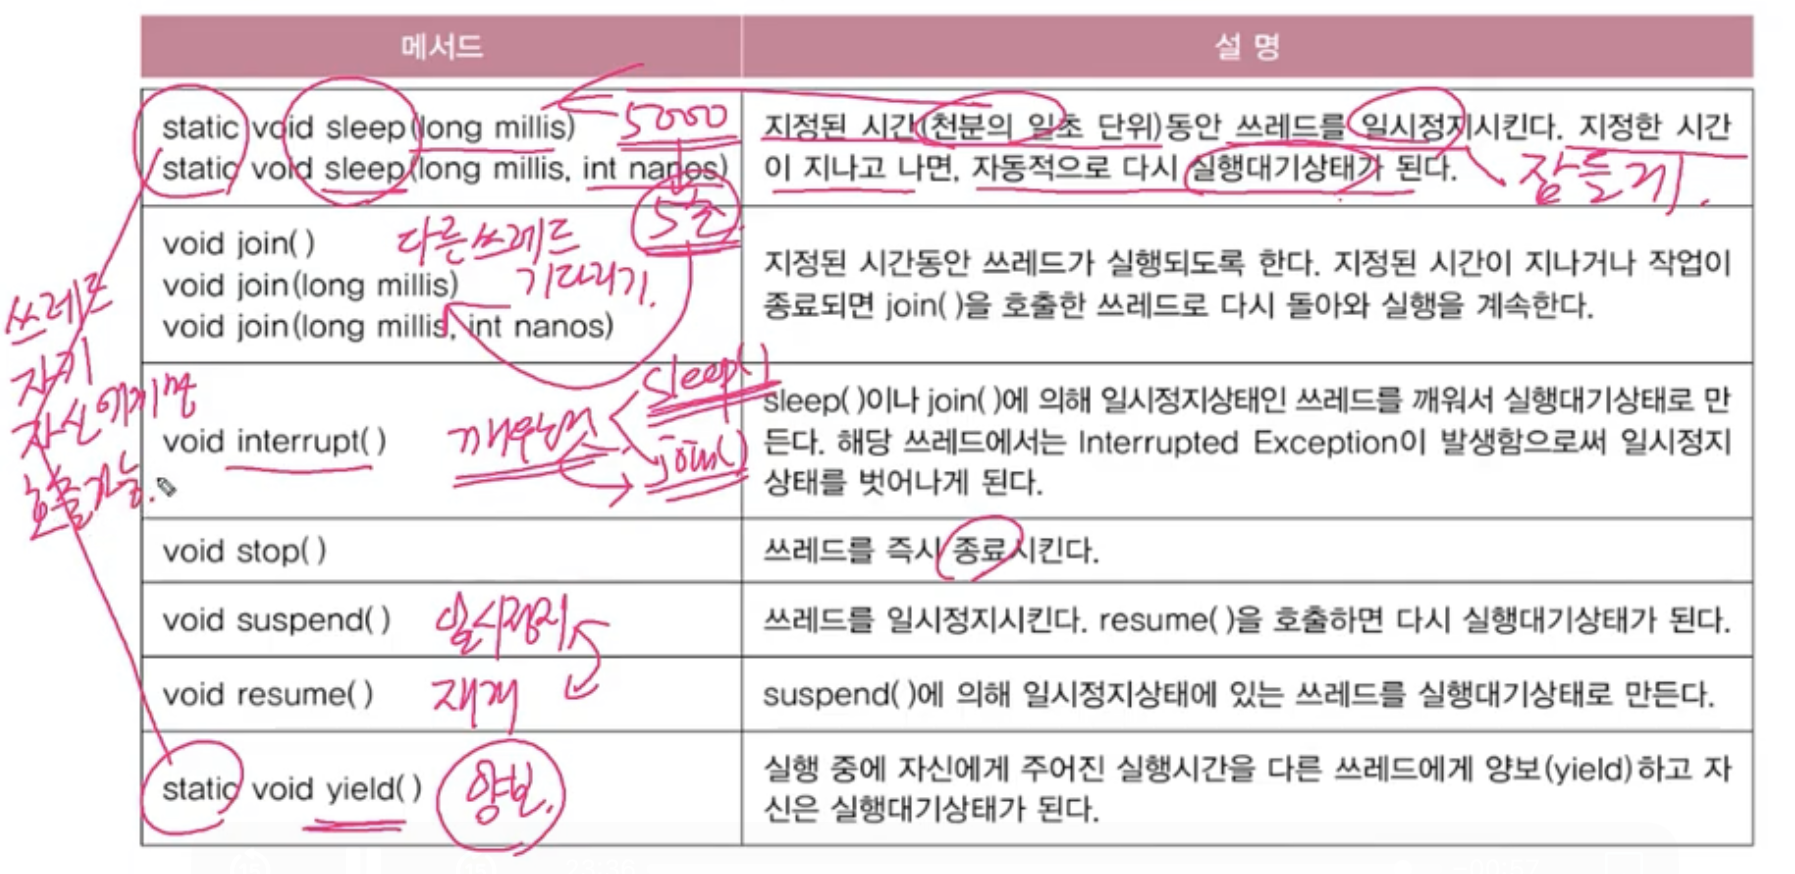 메서드
설 명
static void sleep(long millis)
static void sleep(long millis, int nanos)
5000
5초
지정된 시간(천분의 일초 단위)동안 쓰레드를 일시정지시킨다. 지정한 시간
이 지나고 나면, 자동적으로 다시 실행대기상태가 된다.
잠들게
void join( )
void join(long millis)
void join(long millis, int nanos)
다른쓰레드
기다리기.
지정된 시간동안 쓰레드가 실행되도록 한다. 지정된 시간이 지나거나 작업이
종료되면 join( )을 호출한 쓰레드로 다시 돌아와 실행을 계속한다.
쓰레드
자기
자신에게만
호출가능.
void interrupt( )
sleep()
join()
sleep( )이나 join( )에 의해 일시정지상태인 쓰레드를 깨워서 실행대기상태로 만
든다. 해당 쓰레드에서는 Interrupted Exception이 발생함으로써 일시정지
상태를 벗어나게 된다.
void stop( )
쓰레드를 즉시 종료시킨다.
void suspend( )
일시정지
쓰레드를 일시정지시킨다. resume( )을 호출하면 다시 실행대기상태가 된다.
void resume( )
재개
suspend( )에 의해 일시정지상태에 있는 쓰레드를 실행대기상태로 만든다.
static void yield( )
양보.
실행 중에 자신에게 주어진 실행시간을 다른 쓰레드에게 양보(yield)하고 자
신은 실행대기상태가 된다.